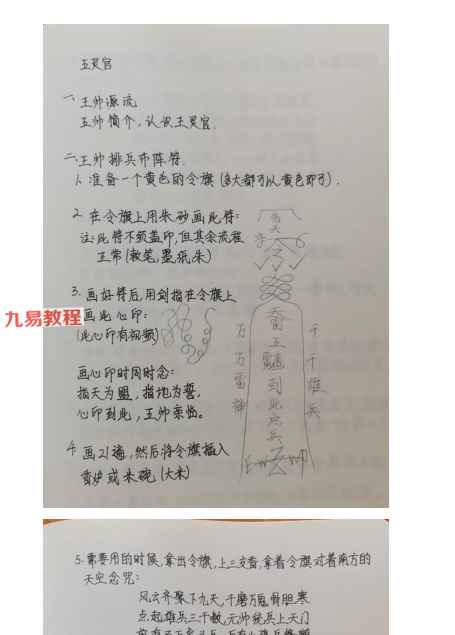 王灵官
一、王帅源流
王帅简介,认识王灵官.
二、王帅排兵布阵符.
1、准备一个黄色的令旗(多大都可以黄色即可).
2、在令旗上用朱砂画此符:
注:此符不须盖印,但其余流程
正常(敕笔,墨,纸,朱)
3、画好符后,用剑指在令旗上
画此心印:
(此心印有视频)
画心印时同时念:
指天为盟,指地为誓,
心印到此,王帅亲临。
4、画21遍,然后将令旗插入
香炉或米碗(大米)
王
到此
兵
万万雷神
千千雄兵
九易教程
5、需要用的时候,拿出令旗,上三支香,拿着令旗对着南方的
天空念咒:
风云齐聚下九天,千磨万鬼骨胆寒
点起雄兵三千数,元帅统兵上天门